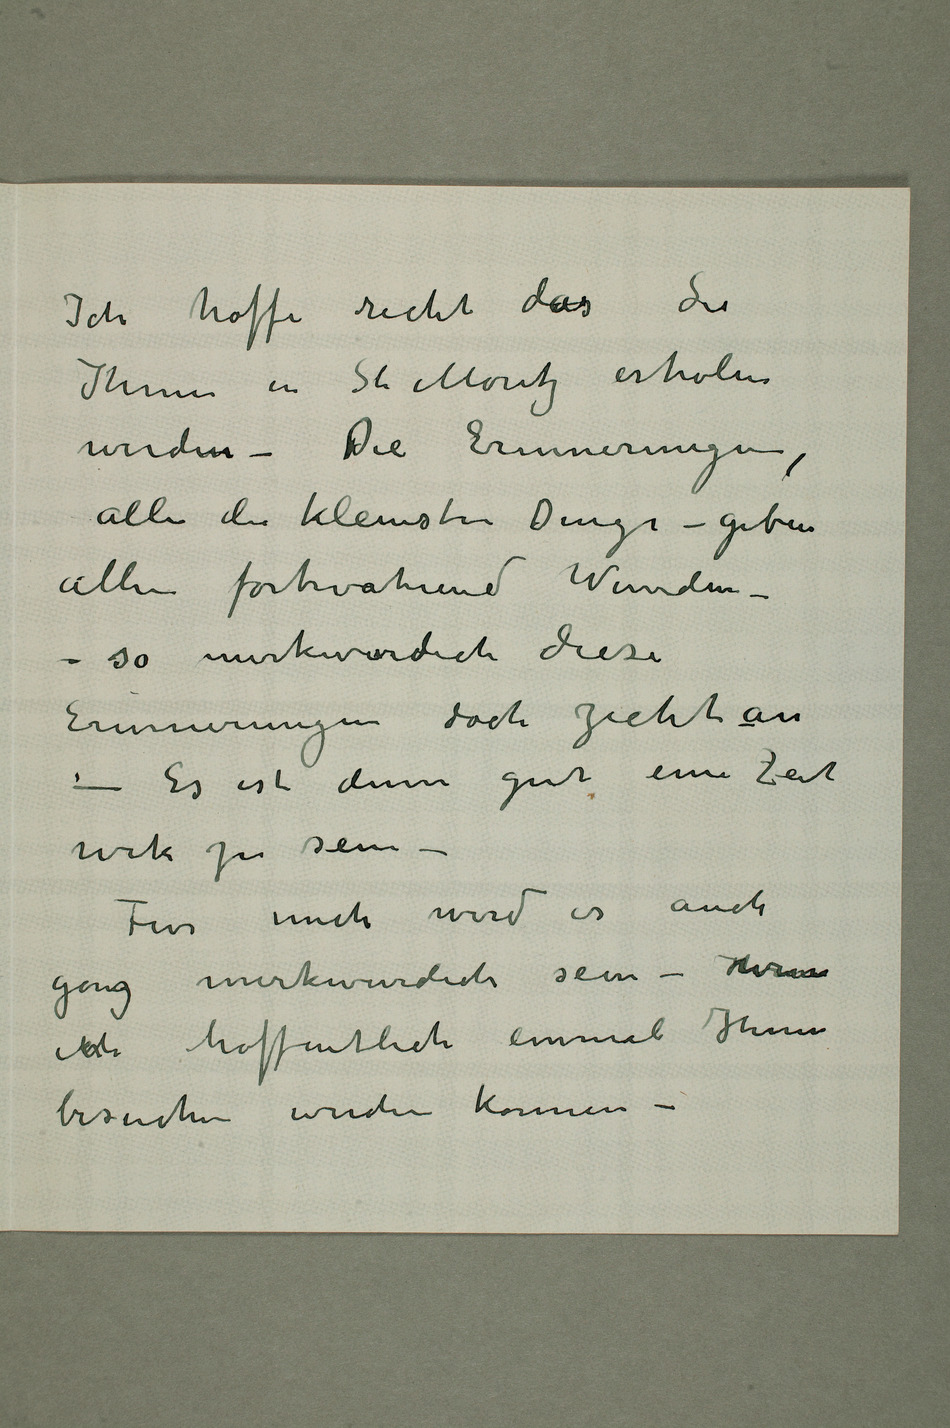 Ich hoffe recht das Sie
Ihnen in St Moritz erholen
werden – Die Erinnerungen,
alle die kleinsten Dinge – geben
allen fortwahrend Wunden –
– so merkwurdich diese
Erinnerungen doch zieht an
– Es ist denn gut eine Zeit
wek zu sein –
Fur mich wird es auch
ganz merkwurdich sein – Wenn
ich hoffentlich einmal Ihnen
besuchen werden konnen –